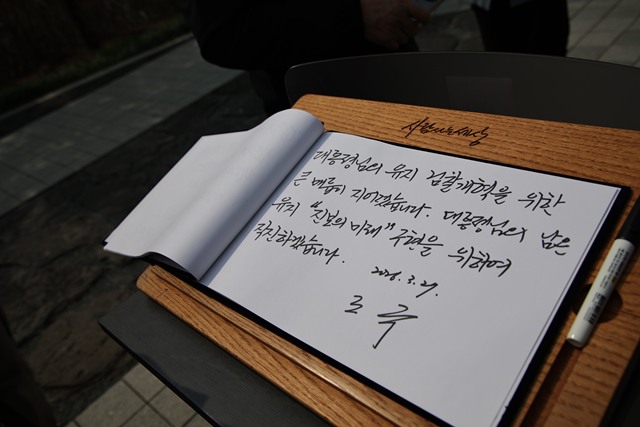 사람사는세상
대통령님의 유지 검찰개혁을 위한
큰 매듭이 지어졌습니다. 대통령님의 남은
유지 "진보의 미래" 구현을 위하여
직진하겠습니다.
2026. 3. 21.
조 국